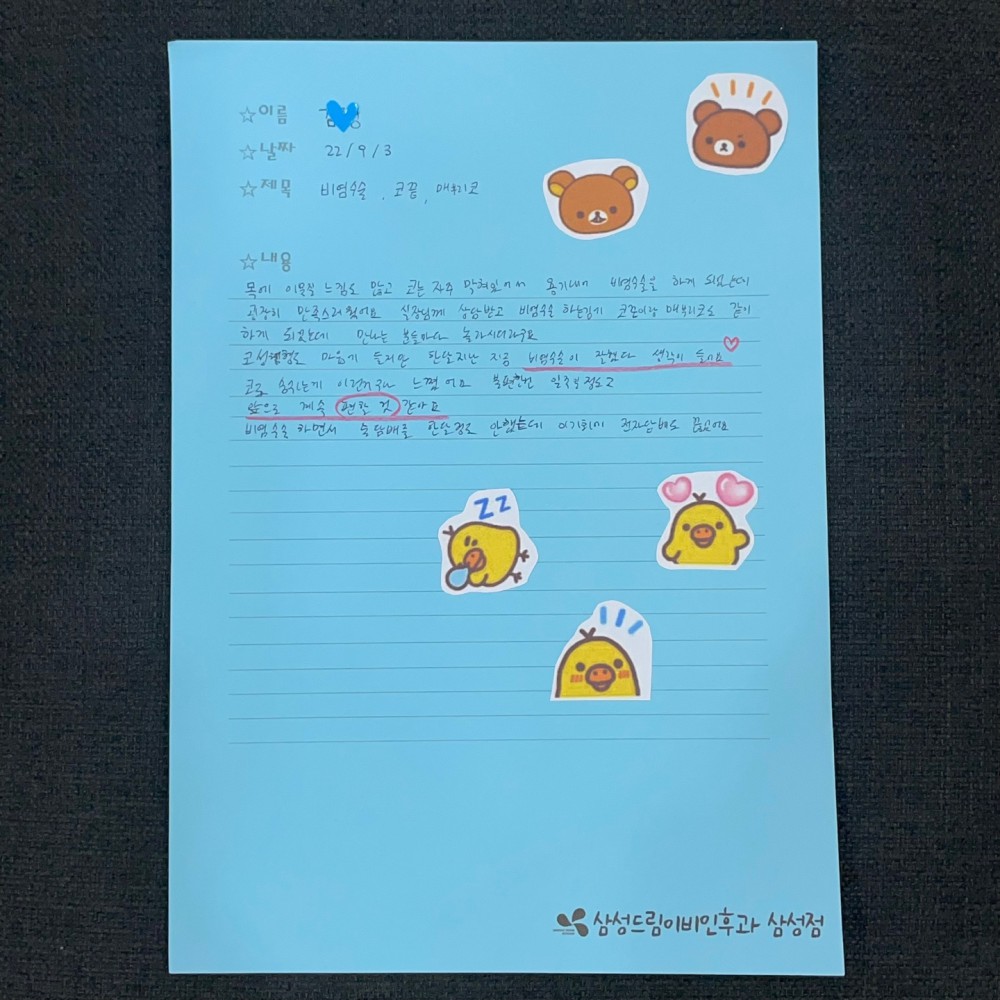 ☆이름
☆날짜 22/9/3
☆제목 비염수술, 코끝, 매부리코
☆내용
목에 이물질 느낌도 많고 코는 자주 막혀있어서 용기내어 비염수술을 하게 되었는데
굉장히 만족스러웠어요 실장님께 상담받고 비염수술 하는김에 코끝이랑 매부리코도 같이
하게 되었는데 만나는 분들마다 놀라시더라구요
코성형도 마음에 들지만 한달지난 지금 비염수술이 잘했다 생각이 들어요
코로 숨쉬는게 이런거구나 느꼈어요 불편한건 일주일정도고
앞으로 계속 편한 것 같아요
비염수술 하면서 술담배를 한달정도 안했는데 이기회에 전자담배도 끊었어요
ZZ
삼성드림이비인후과 삼성점